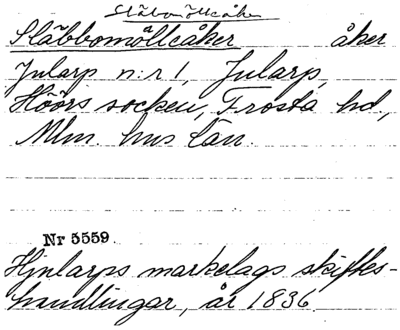 Släbbomöllcåker åker
Jularp n:r 1, Jularp,
Höörs socken, Frosta hd,
Mlm. hus län.
Nr 5559.
Hjularps markelags skiftes-
handlingar, år 1836